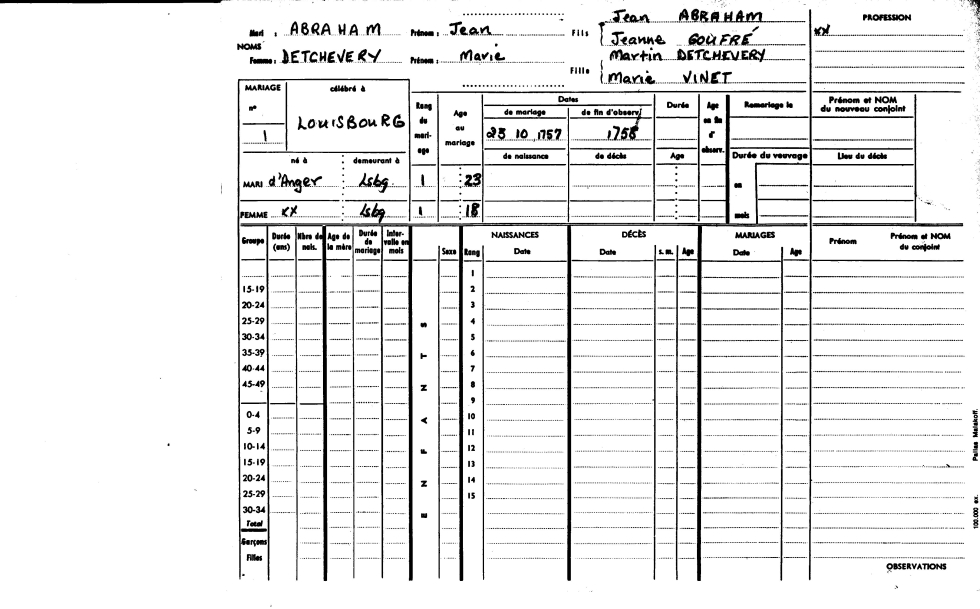 Mari : ABRAHAM Prénom : Jean Fils Jean ABRAHAM
Jeanne GOUFRÉ
PROFESSION
xx
NOMS
Femme : DETCHEVERY Prénom : Marie Fille Martin DETCHEVERY
Marie VINET
MARIAGE
n°
1
célébré à
LOUISBOURG
Rang du mari-age
Age au mariage
Dates
de mariage de fin d'observ.
23 10 1757 1758
de naissance de décès
Durée
Age
Age en fin d' observ.
Remariage le
Prénom et NOM du nouveau conjoint
Durée du veuvage
Lieu du décès
en
mois
né à demeurant à
MARI d'Anger Lsbg 1 23
FEMME xx Lsbg 1 18
Groupe Durée (ans) Nbre de nais. Age de la mère Durée de mariage Inter-valle en mois Sexe Rang
NAISSANCES
Date
DÉCÈS
Date s. m. Age
MARIAGES
Date Age
Prénom Prénom et NOM du conjoint
1
15-19 2
20-24 3
25-29 4
30-34 5
35-39 6
40-44 7
45-49 8
9
0-4 10
5-9 11
10-14 12
15-19 13
20-24 14
25-29 15
30-34
Total
Garçons
Filles
ENFANTS
OBSERVATIONS
100.000 ex. Pallas Malakoff.